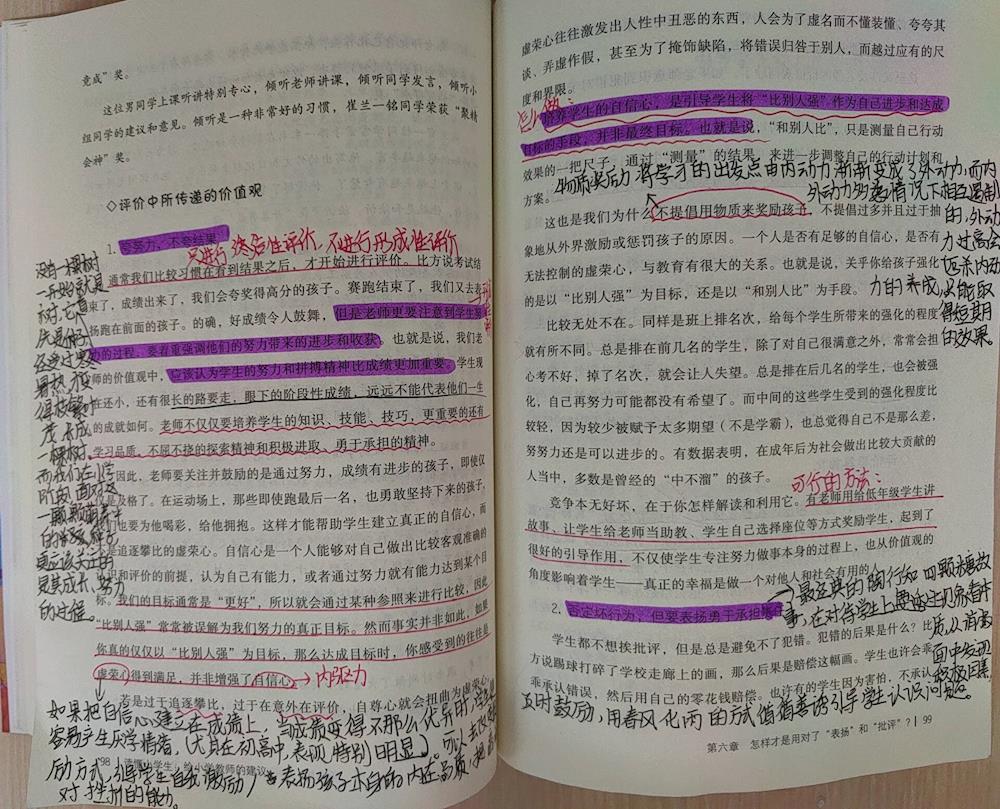 竟成”奖。
这位男同学上课听讲特别专心，倾听老师讲课，倾听同学发言，倾听小
组同学的建议和意见。倾听是一种非常好的习惯，崔兰一铭同学荣获“聚精
会神”奖。
◇评价中所传递的价值观
1. 夸努力，不夸结果
只进行终结性评价，不进行形成性评价
通常我们比较习惯在看到结果之后，才开始进行评价。比方说考试结
束了，成绩出来了，我们会夸奖得高分的孩子。赛跑结束了，我们又去表
扬跑在前面的孩子。的确，好成绩令人鼓舞，但是老师更要注意到学生努
力的过程，要着重强调他们的努力带来的进步和收获。也就是说，我们老
师的价值观中，应该认为学生的努力和拼搏精神比成绩更加重要。学生现
在还小，还有很长的路要走，眼下的阶段性成绩，远远不能代表他们一生
的成就如何。老师不仅仅要培养学生的知识、技能、技巧，更重要的还有
学习品质、不屈不挠的探索精神和积极进取、勇于承担的精神。
因此，老师要关注并鼓励的是通过努力，成绩有进步的孩子，即使仅
仅是及格了。在运动场上，那些即使跑最后一名，也勇敢坚持下来的孩子，
们也要为他喝彩，给他拥抱。这样才能帮助学生建立真正的自信心，而
不是追逐攀比的虚荣心。自信心是一个人能够对自己做出比较客观准确的
识和评价的前提，认为自己有能力，或者通过努力就有能力达到某个目
标。我们的目标通常是“更好”，所以就会通过某种参照来进行比较，因此
“比别人强”常常被误解为我们努力的真正目标。然而事实并非如此，如果
你真的仅仅以“比别人强”为目标，那么达成目标时，你感受到的往往是
虚荣心得到满足，并非增强了自信心。→内驱力
若是过于追逐攀比，过于在意外在评价，自尊心就会扭曲为虚荣心，
没有一棵树
一开始就是
树，它
经受过寒
暑热，
茂才成
一棵树，
而我们在小学
阶段面对
的
更应该关注的
是其成长、努力
的过程。
如果把自信心建立在成绩上，当成绩变得不那么优异时，学生很
容易产生厌学情绪，(尤其在初高中，表现特别明显)。所以
励方式，引导学生自我激励，表扬孩子本身的内在品质，提高
对挫折的能力。
98 读懂小学生：给小学教师的建议
虚荣心往往激发出人性中丑恶的东西，人会为了虚名而不懂装懂、夸夸其
谈、弄虚作假，甚至为了掩饰缺陷，将错误归咎于别人，而越过应有的尺
度和界限。
怎么做：
培养学生的自信心，是引导学生将“比别人强”作为自己进步和达成
目标的手段，并非最终目标。也就是说，“和别人比”，只是测量自己行动
效果的一把尺子，通过“测量”的结果，来进一步调整自己的行动计划和
方案。
物质奖励将学习的出发点由内动力渐渐变成了外动力，而内
外动力多数情况下相互遏制
的，外动
力过高会
扼杀内动
力的养成，只能取
得短期
的效果。
这也是我们为什么不提倡用物质来奖励孩子，不提倡过多并且过于抽
象地从外界激励或惩罚孩子的原因。一个人是否有足够的自信心，是否有
无法控制的虚荣心，与教育有很大的关系。也就是说，关乎你给孩子强化
的是以“比别人强”为目标，还是以“和别人比”为手段。
比较无处不在。同样是班上排名次，给每个学生所带来的强化的程度
就有所不同。总是排在前几名的学生，除了对自己很满意之外，常常会担
心考不好，掉了名次，就会让人失望。总是排在后几名的学生，也会被强
化，自己再努力可能都没有希望了。而中间的这些学生受到的强化程度比
较轻，因为较少被赋予太多期望（不是学霸），也总觉得自己不是那么差，
努努力还是可以进步的。有数据表明，在成年后为社会做出比较大贡献的
人当中，多数是曾经的“中不溜”的孩子。
可行的方法：
竞争本无好坏，在于你怎样解读和利用它。有老师用给低年级学生讲
故事、让学生给老师当助教、学生自己选择座位等方式奖励学生，起到了
很好的引导作用，不仅使学生专注努力做事本身的过程上，也从价值观的
角度影响着学生——真正的幸福是做一个对他人和社会有用的人。
2. 否定坏行为，但要表扬勇于承担责任
最经典的陶行知四颗糖故
事，在对待学生上要透过现象看本
质，从消极
面中发现
积极因素
及时鼓励，用春风化雨的方式循循善诱引导学生认识问题。
学生都不想挨批评，但是总是避免不了犯错。犯错的后果是什么？比
方说踢球打碎了学校走廊上的画，那么后果是赔偿这幅画。学生也会乖
乖承认错误，然后用自己的零花钱赔偿。也许有的学生因为害怕，不承认
第六章 怎样才是用对了“表扬”和“批评”？ | 99